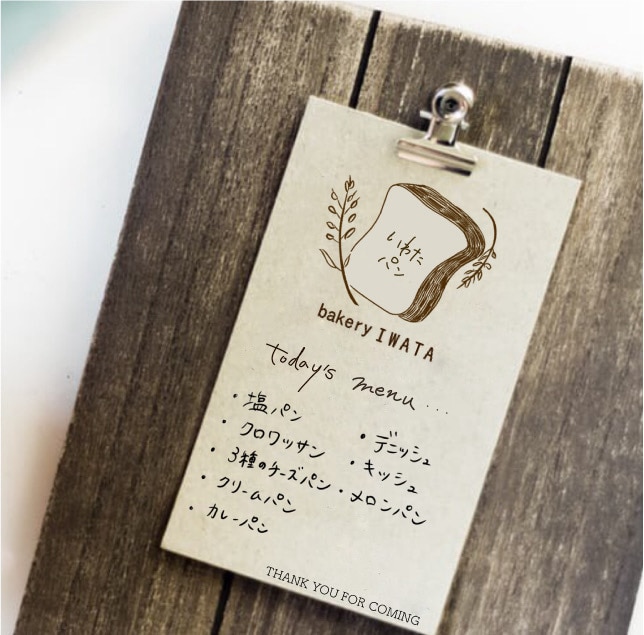 いわた
パン
bakery IWATA
today's menu...
・塩パン
・クロワッサン
・3種のチーズパン
・クリームパン
・カレーパン
・デニッシュ
・キッシュ
・メロンパン
THANK YOU FOR COMING